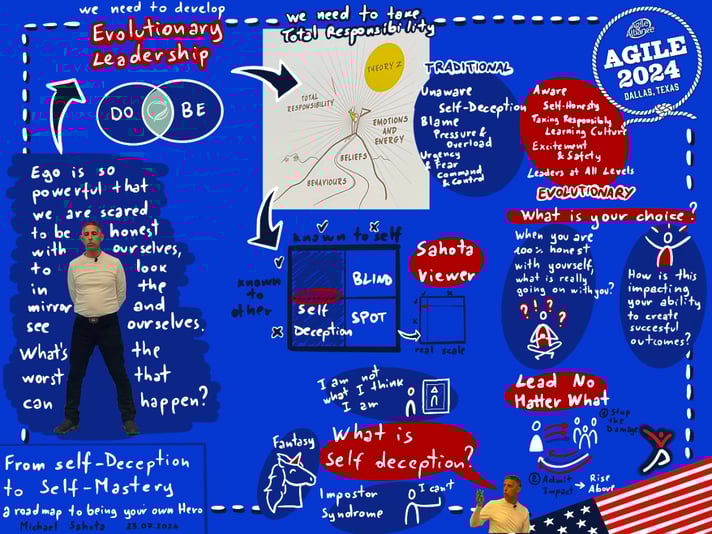 we need to develop
Evolutionary
Leadership
DO
BE
we need to take
Total Responsibility
THEORY Z
TOTAL
RESPONSIBILITY
EMOTIONS
AND
ENERGY
BELIEFS
BEHAVIOURS
TRADITIONAL
Unaware
Self-Deception
Blame
Pressure &
Overload
Urgency
& Fear
Command
& Control
Aware
Self-Honesty
Taking Responsibility
Learning Culture
Excitement
& Safety
Leaders at All Levels
EVOLUTIONARY
Agile Alliance
AGILE
2024
DALLAS, TEXAS
Ego is so
powerful that
we are scared
to be honest
with ourselves,
to look
in the
mirror and
see ourselves.
What's the
worst that
can happen?
known to self
known
to
other
BLIND
SPOT
Self
Deception
Sahota
Viewer
real scale
What is your choice?
When you are
100% honest
with yourself,
what is really
going on with you?
? ? ?
How is this
impacting
your ability
to create
succesful
outcomes?
I am not
what I think
I am
Lead No
Matter What
① Stop
the
Damage
② Admit
Impact
Rise
Above
Fantasy
What is
Self deception?
Impostor
Syndrome
I can't
From self-Deception
to Self-Mastery
a roadmap to being your own Hero
Michael Sahota 23.07.2024